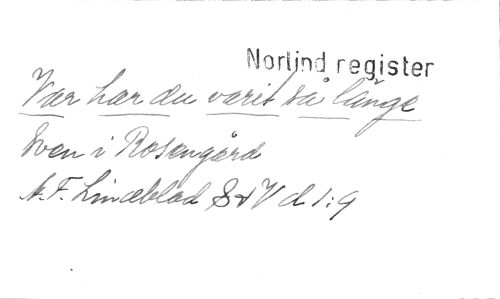 Norlind register
Var har du varit så länge
Sven i Rosengård
A. F. Lindblad S & V d 1:9